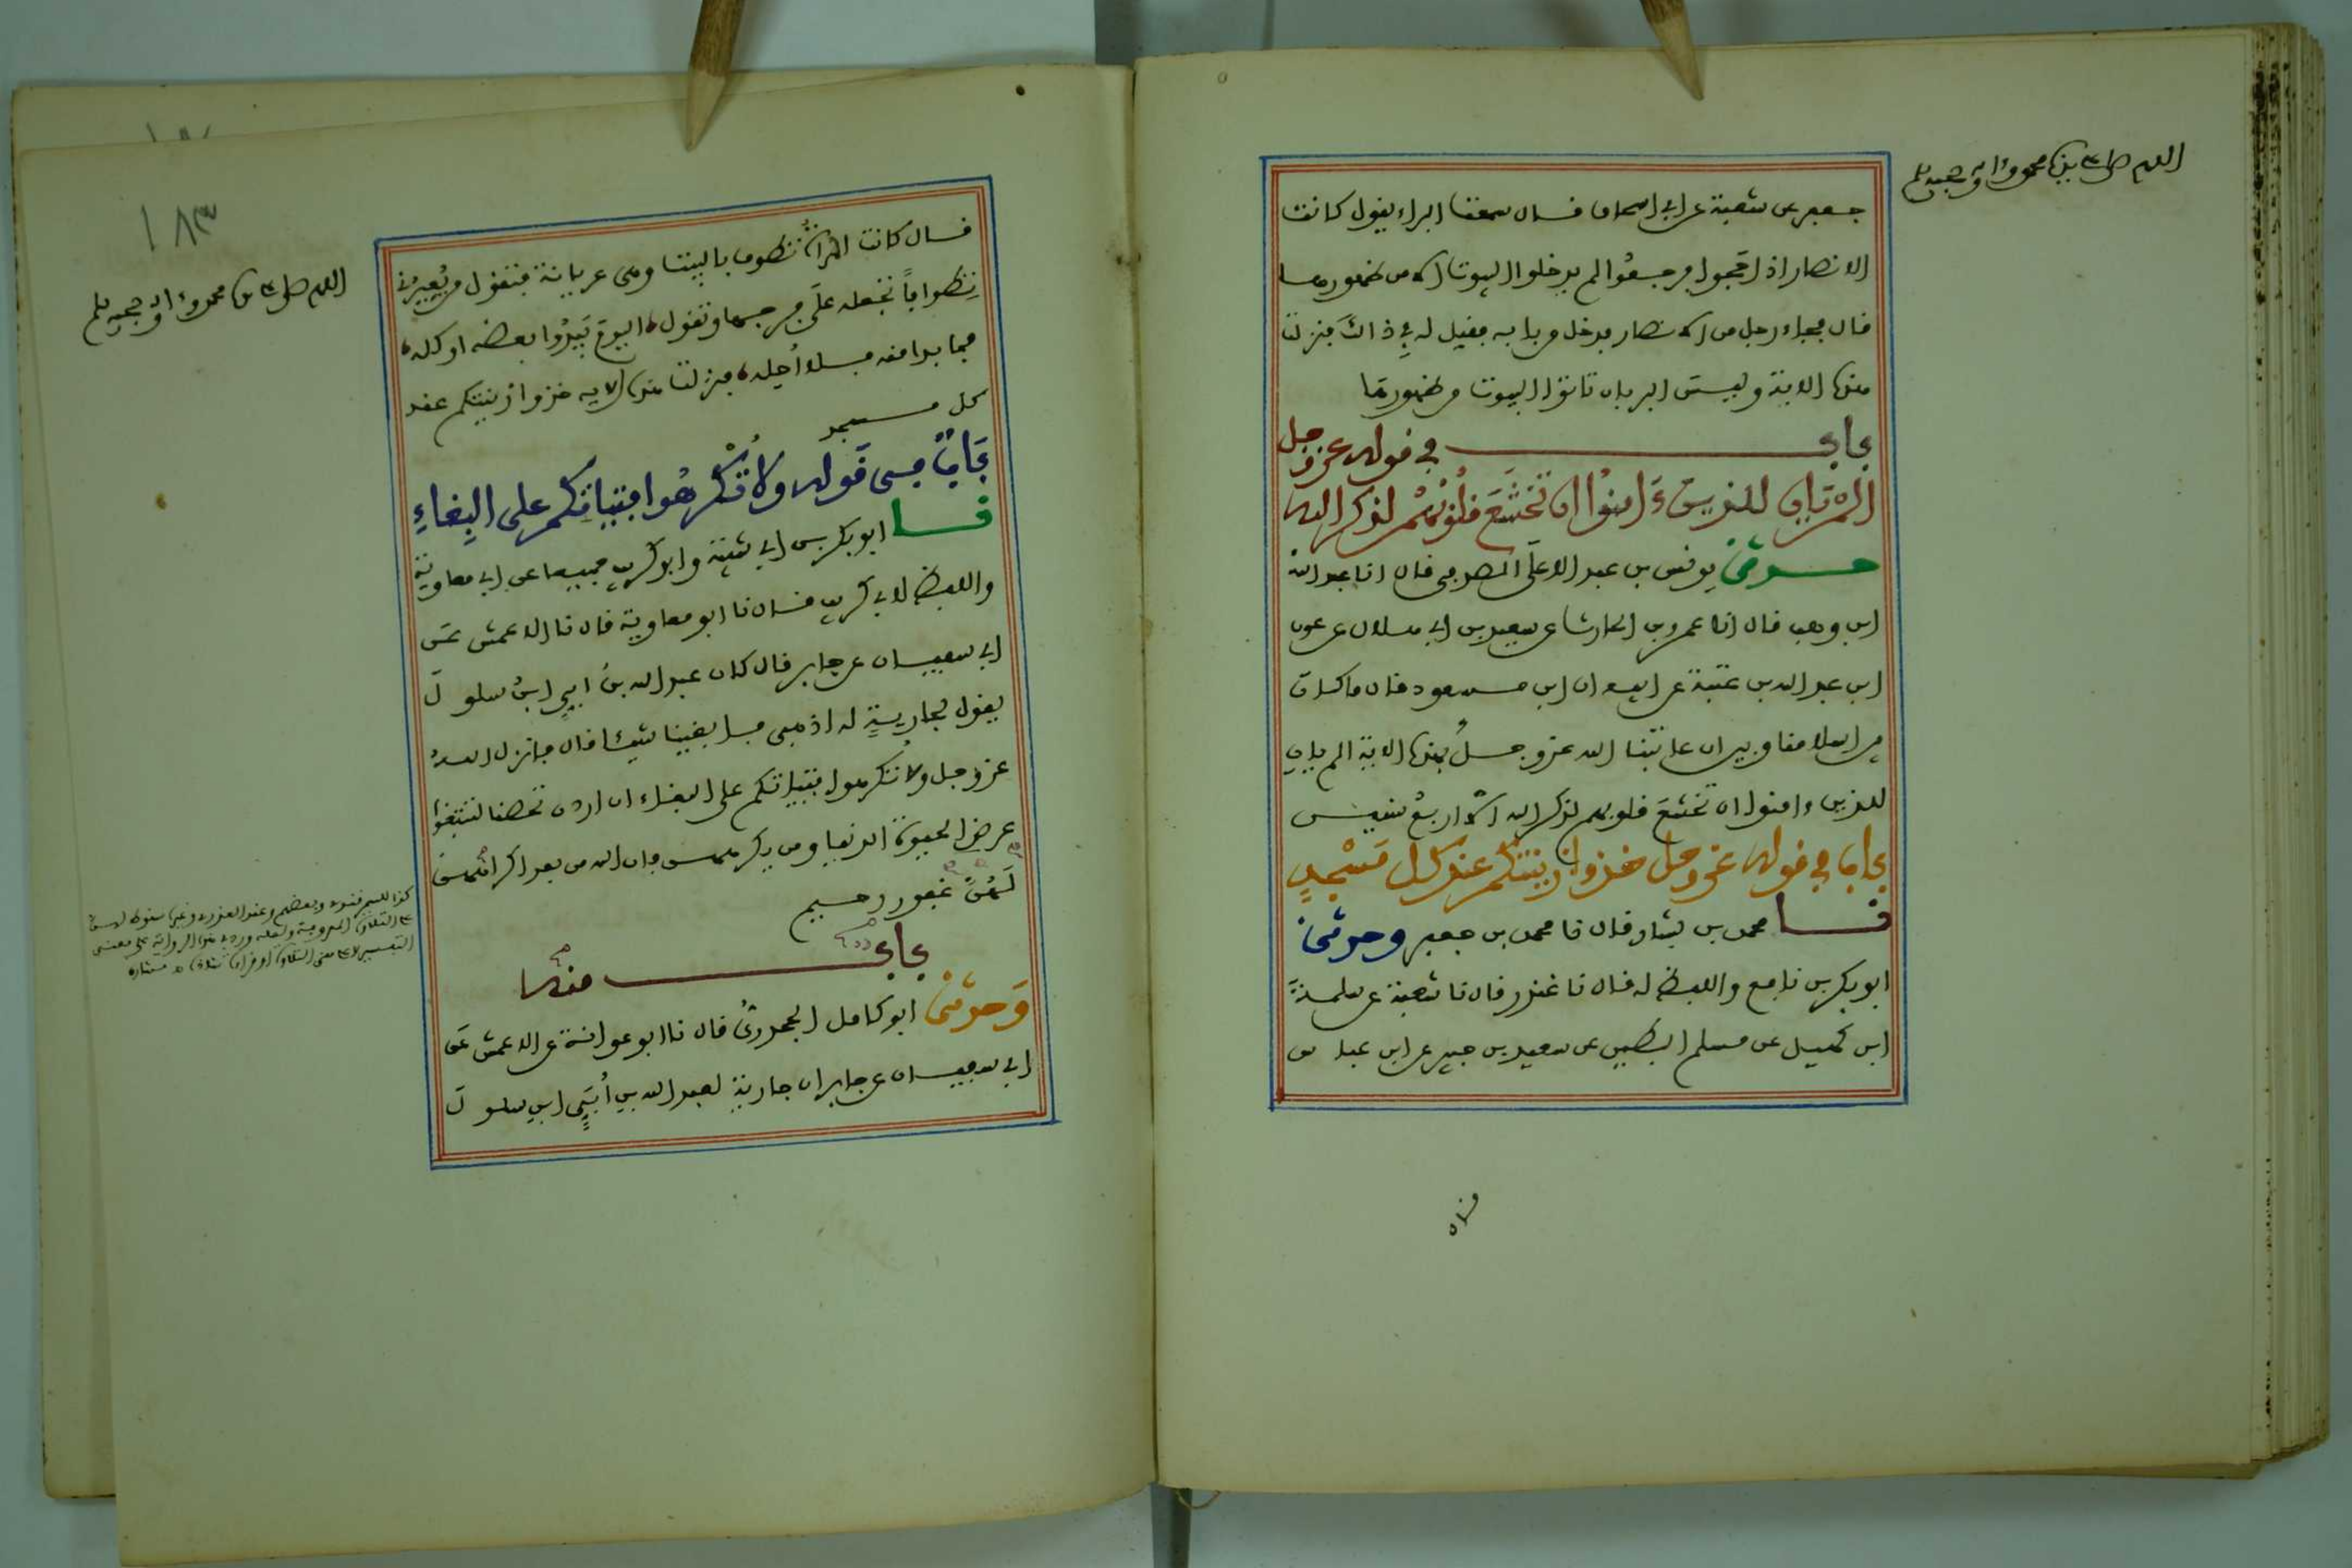 اللهم صل على سيدنا محمد وآله وصحبه وسلم
جعفر عن شعبة عن ابي اسحاق قال سمعت البراء يقول كانت
الانصار اذا حجوا فرجعوا لم يدخلوا البيوت الا من ظهورها
قال فجاء رجل من الانصار فدخل من بابه فقيل له في ذالك فنزلت
هذه الاية وليس البر بان تاتوا البيوت من ظهورها
باب في قوله عز وجل
الم يان للذين ءامنوا ان تخشع قلوبهم لذكر الله
حدثني يونس بن عبد الاعلى الصدفي قال انا عبد الله
ابن وهب قال انا عمرو بن الحارث عن سعيد بن ابي هلال عن عون
ابن عبد الله بن عتبة عن ابيه ان ابن مسعود قال ما كان
بين اسلامنا وبين ان عاتبنا الله عز وجل بهذه الاية الم يان
للذين ءامنوا ان تخشع قلوبهم لذكر الله الا اربع سنين
باب في قوله عز وجل خذوا زينتكم عند كل مسجد
نا محمد بن بشار قال نا محمد بن جعفر وحدثني
ابو بكر بن نافع واللفظ له قال نا غندر قال نا شعبة عن سلمة
ابن كهيل عن مسلم البطين عن سعيد بن جبير عن ابن عباس
قال
١٨٣
اللهم صل على سيدنا محمد وآله وصحبه وسلم
قال كانت المرأة تطوف بالبيت وهي عريانة فتقول من يعيرني
تطوافا تجعله على فرجها وتقول اليوم يبدوا بعضه او كله
فما بدا منه فلا أحله فنزلت هذه الاية خذوا زينتكم عند
كل مسجد
باب في قوله ولا تكرهوا فتياتكم على البغاء
نا ابو بكر بن ابي شيبة وابو كريب جميعا عن ابي معاوية
واللفظ لابي كريب قال نا ابو معاوية قال نا الاعمش عن
ابي سفيان عن جابر قال كان عبد الله بن أبي ابن سلول
يقول لجارية له اذهبي فابغينا شيئا قال فانزل الله
عز وجل ولا تكرهوا فتياتكم على البغاء ان اردن تحصنا لتبتغوا
عرض الحيوة الدنيا ومن يكرههن فان الله من بعد اكراههن
لهن غفور رحيم
باب منه
وحدثني ابو كامل الجحدري قال نا ابو عوانة عن الاعمش عن
ابي سفيان عن جابر ان جارية لعبد الله بن أبي ابن سلول